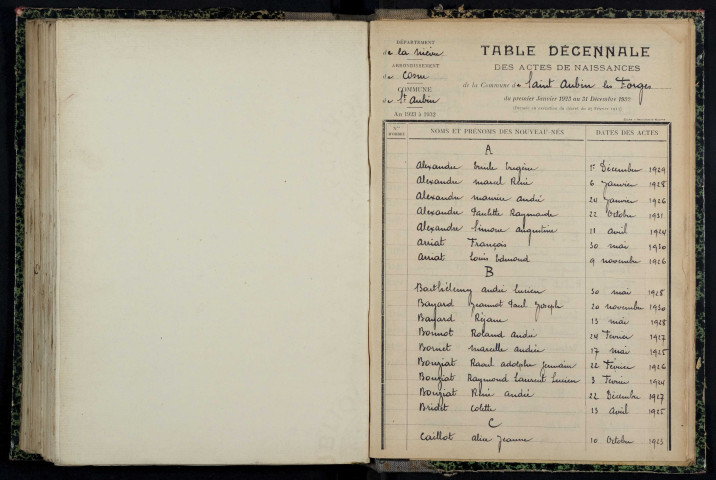 DÉPARTEMENT
de la Nièvre
ARRONDISSEMENT
de Cosne
COMMUNE
de St Aubin
An 1923 à 1932
TABLE DÉCENNALE
DES ACTES DE NAISSANCES
de la Commune de Saint Aubin les Forges
du premier Janvier 1923 au 31 Décembre 1932
NOMS ET PRÉNOMS DES NOUVEAU-NÉS DATES DES ACTES
A
Alexandre Emile Eugène 1er Décembre 1929
Alexandre Marcel René 6 Janvier 1928
Alexandre Maurice André 24 Janvier 1926
Alexandre Paulette Raymonde 22 Octobre 1931
Alexandre Simone Augustine 11 Avril 1924
Amiat François 30 mai 1930
Amiat Louis Edmond 9 novembre 1926
B
Barthélemy André Lucien 30 mai 1928
Bayard Jeannot Paul Joseph 20 novembre 1930
Bayard Réjane 13 mai 1928
Bonnot Roland André 24 Février 1927
Bornet Marcelle Andrée 17 mai 1925
Bougiat Raoul Adolphe Germain 22 Février 1926
Bougiat Raymond Laurent Lucien 3 Février 1924
Bougiat René André 22 Décembre 1927
Bridet Colette 13 Avril 1925
C
Caillot Alice Jeanne 10 Octobre 1923